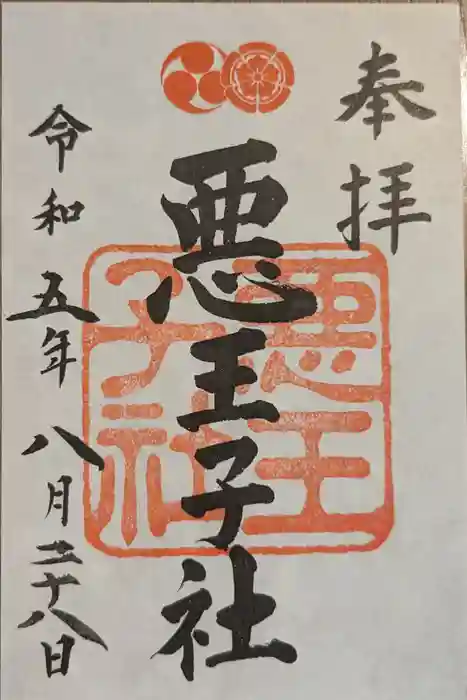 奉拝
悪王子社
悪王
子社
令和五年八月二十八日